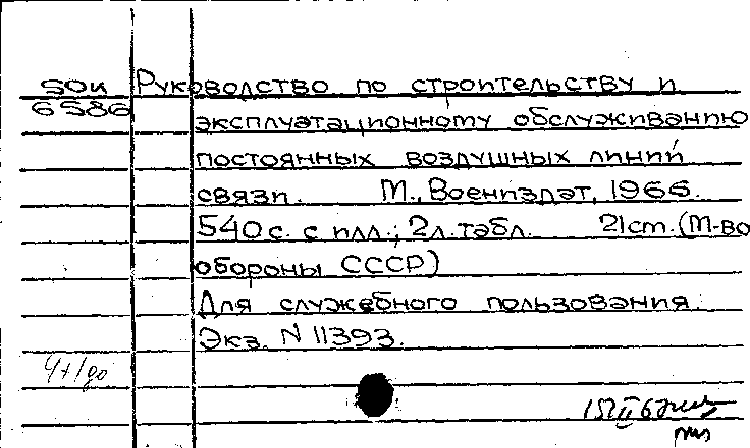 50и Руководство по строительству и
6586 эксплуатационному обслуживанию
постоянных воздушных линий
связи. М., Воениздат, 1966.
540с. с илл.; 2л. табл. 21см. (М-во
обороны СССР)
Для служебного пользования.
Экз. N 11393.